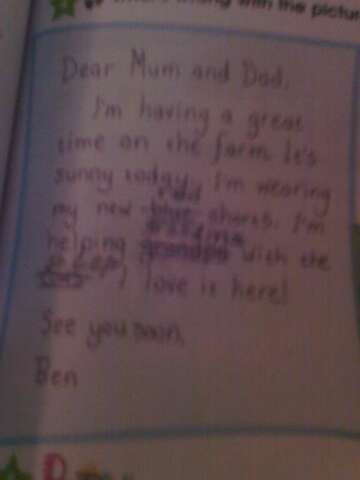 with the pictur
Dear Mum and Dad,
I'm having a great
time on the farm. It's
sunny today. I'm wearing
red
my new blue shorts. I'm
grandma
helping grandpa with the
I love it here!
See you soon,
Ben